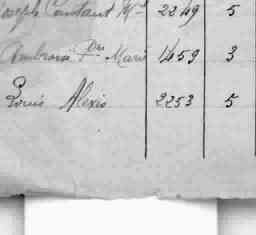 Joseph Constant Md 2349 5
Ambroise Dn Marie 1459 3
Louis Alexis 2253 5